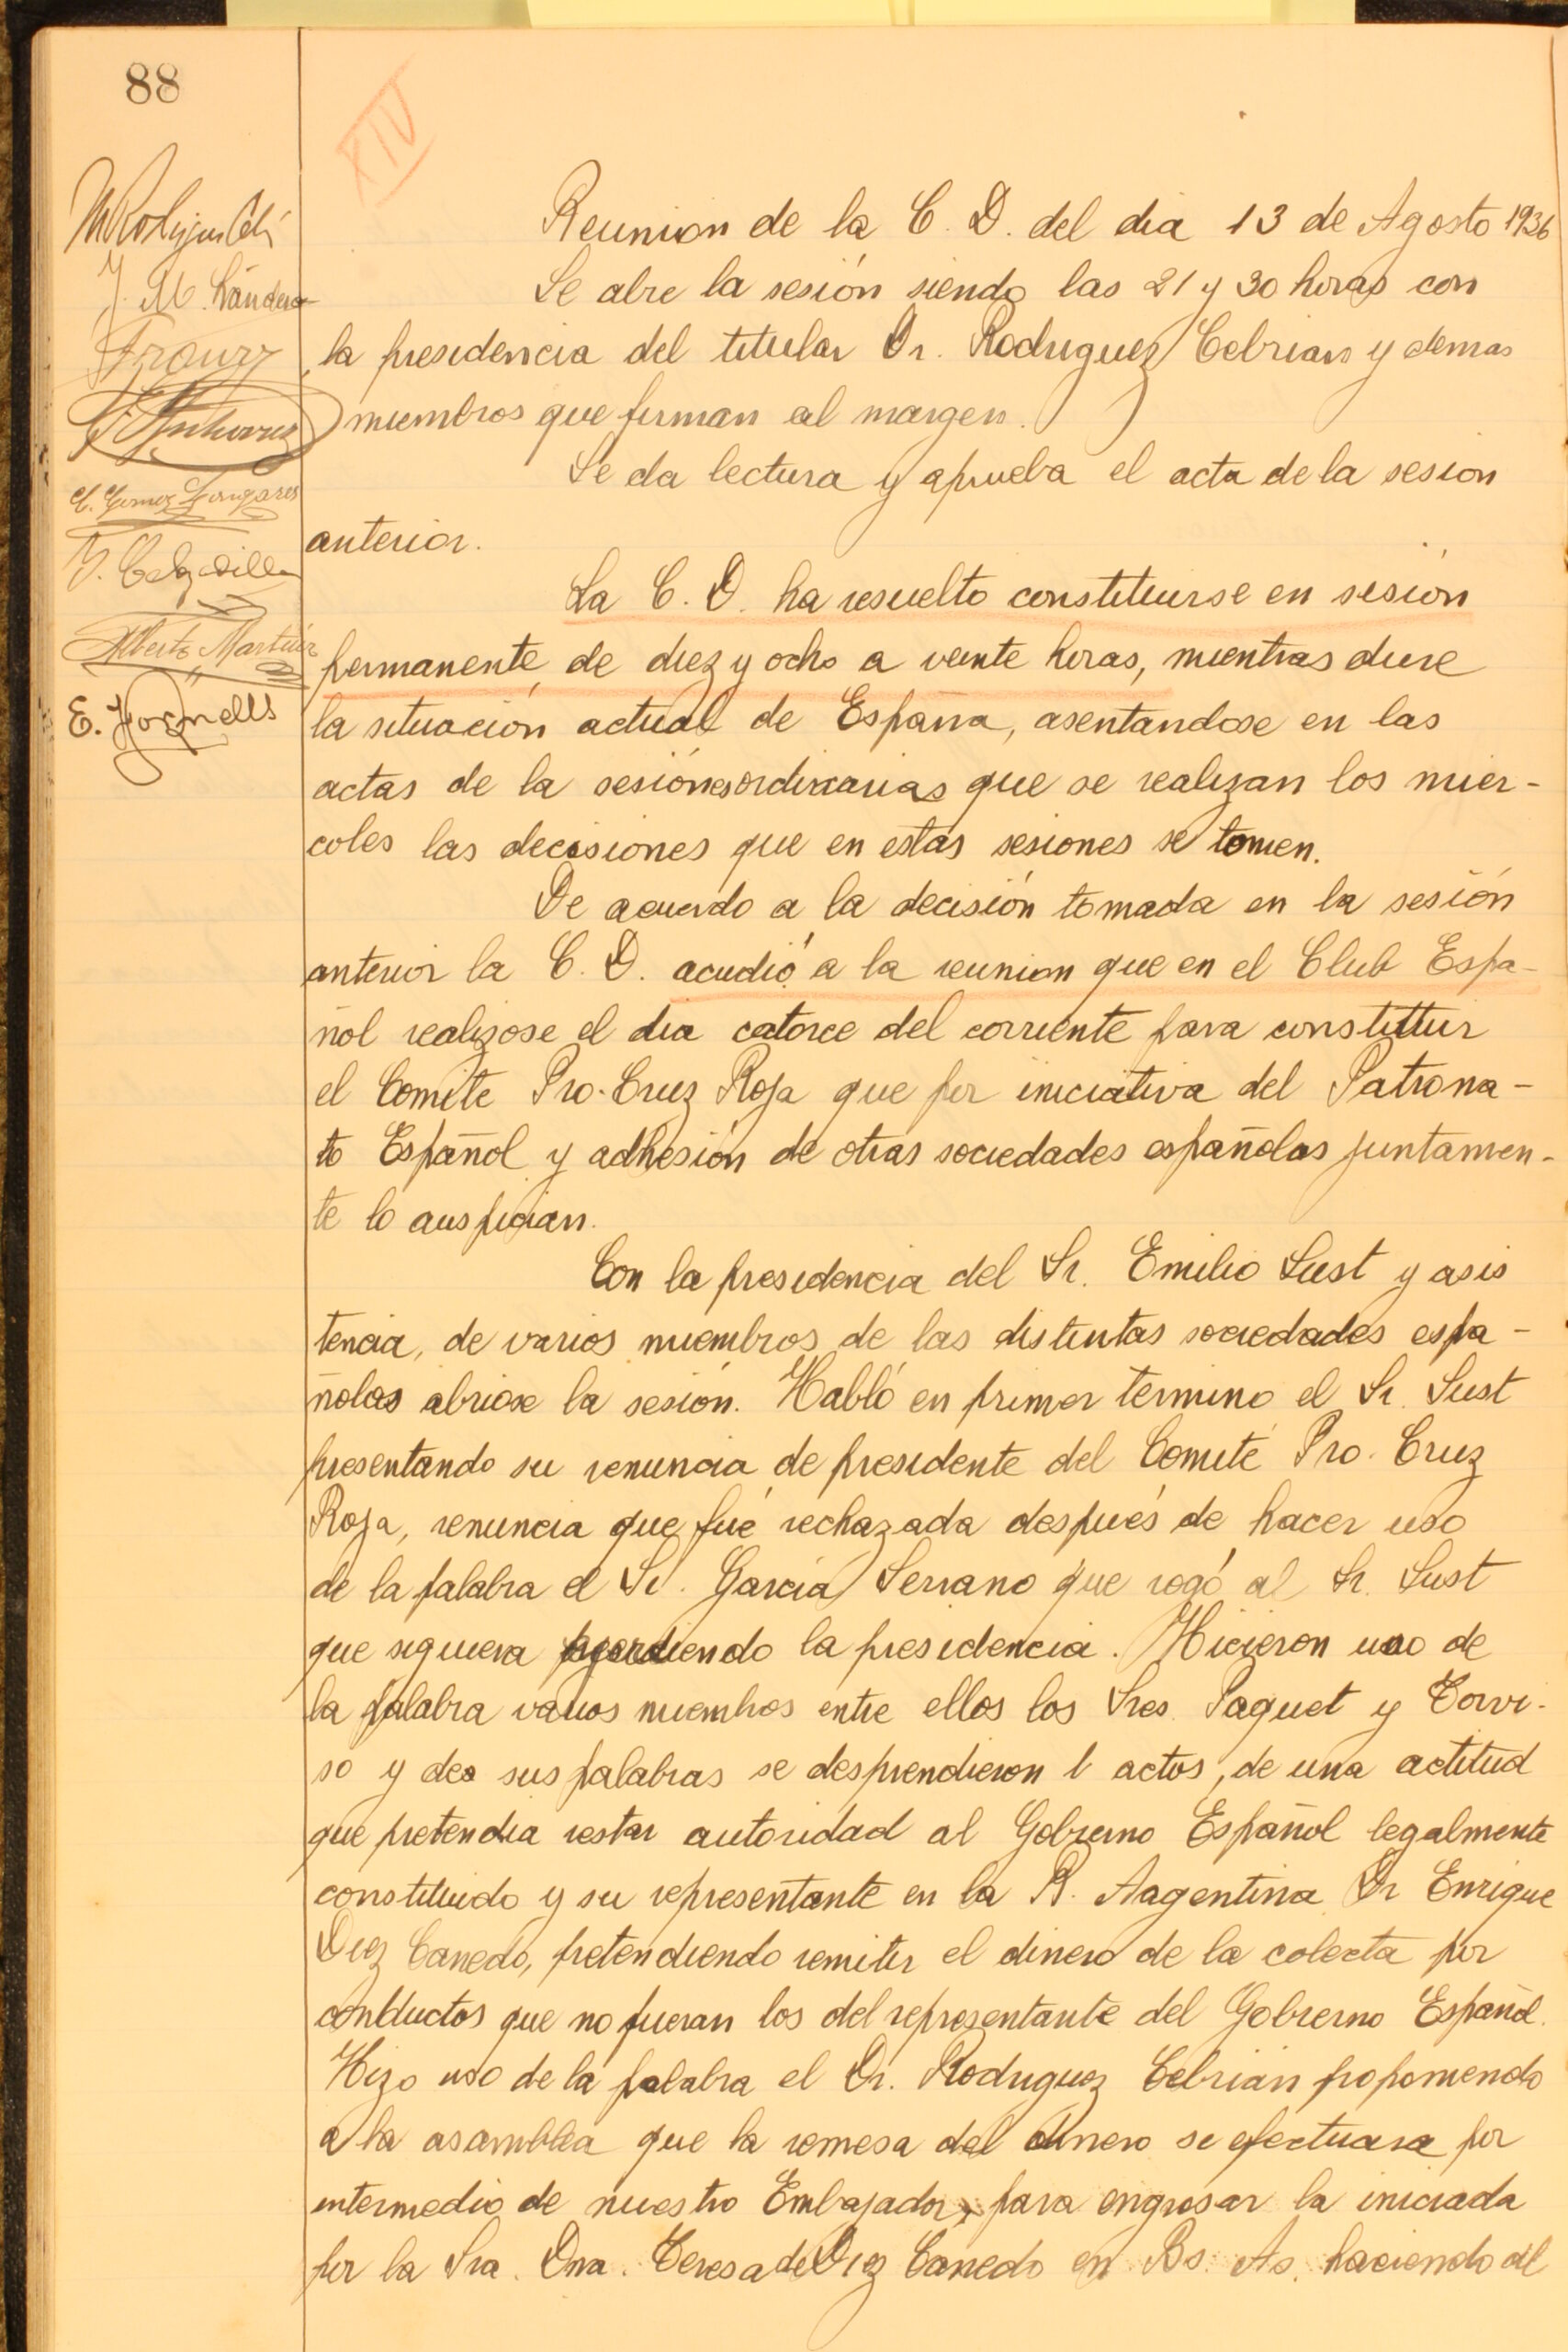 88
XIV
J. M. Lándera
E. Gomez Longares
Y. Calzadilla
Alberto Martinez
E. Hornells
Reunion de la C. D. del dia 13 de Agosto 1936
Se abre la sesión siendo las 21 y 30 horas con
la presidencia del titular Dr. Rodriguez Cebrian y demas
miembros que firman al margen.
Se da lectura y aprueba el acta de la sesion
anterior.
La C. D. ha resuelto constituirse en sesión
permanente de diez y ocho a veinte horas, mientras dure
la situación actual de España, asentandose en las
actas de la sesiónes ordinarias que se realizan los mier-
coles las decisiones que en estas sesiones se tomen.
De acuerdo a la decisión tomada en la sesión
anterior la C. D. acudió a la reunion que en el Club Espa-
ñol realizose el dia catorce del corriente para constittuir
el Comite Pro-Cruz Roja que por iniciativa del Patrona-
to Español y adhesión de otras sociedades españolas juntamen-
te lo auspician.
Con la presidencia del Sr. Emilio Sust y asis
tencia, de varios miembros de las distintas sociedades espa-
ñolas abriose la sesión. Habló en primer termino el Sr. Sust
presentando su renuncia de presidente del Comité Pro-Cruz
Roja, renuncia que fué rechazada después de hacer uso
de la palabra el Sr. García Serrano que rogó al Sr. Sust
que siguiera la presidencia. Hicieron uso de
la palabra varios miembros entre ellos los Sres. Paquet y Torvi-
so y des sus palabras se desprendieron l actos, de una actitud
que pretendia restar autoridad al Gobierno Español legalmente
constituido y su representante en la R. Aagentina Dr Enrique
Diez Canedo, pretendiendo remitir el dinero de la colecta por
conductos que no fueran los del representante del Gobierno Español.
Hizo uso de la palabra el Dr. Rodriguez Cebrián proponiendo
a la asamblea que la remesa del dinero se efectuara por
intermedio de nuestro Embajador, para engrosar la iniciada
por la Sra. Dna. Teresa de Diez Canedo en Bs. As. haciendo al